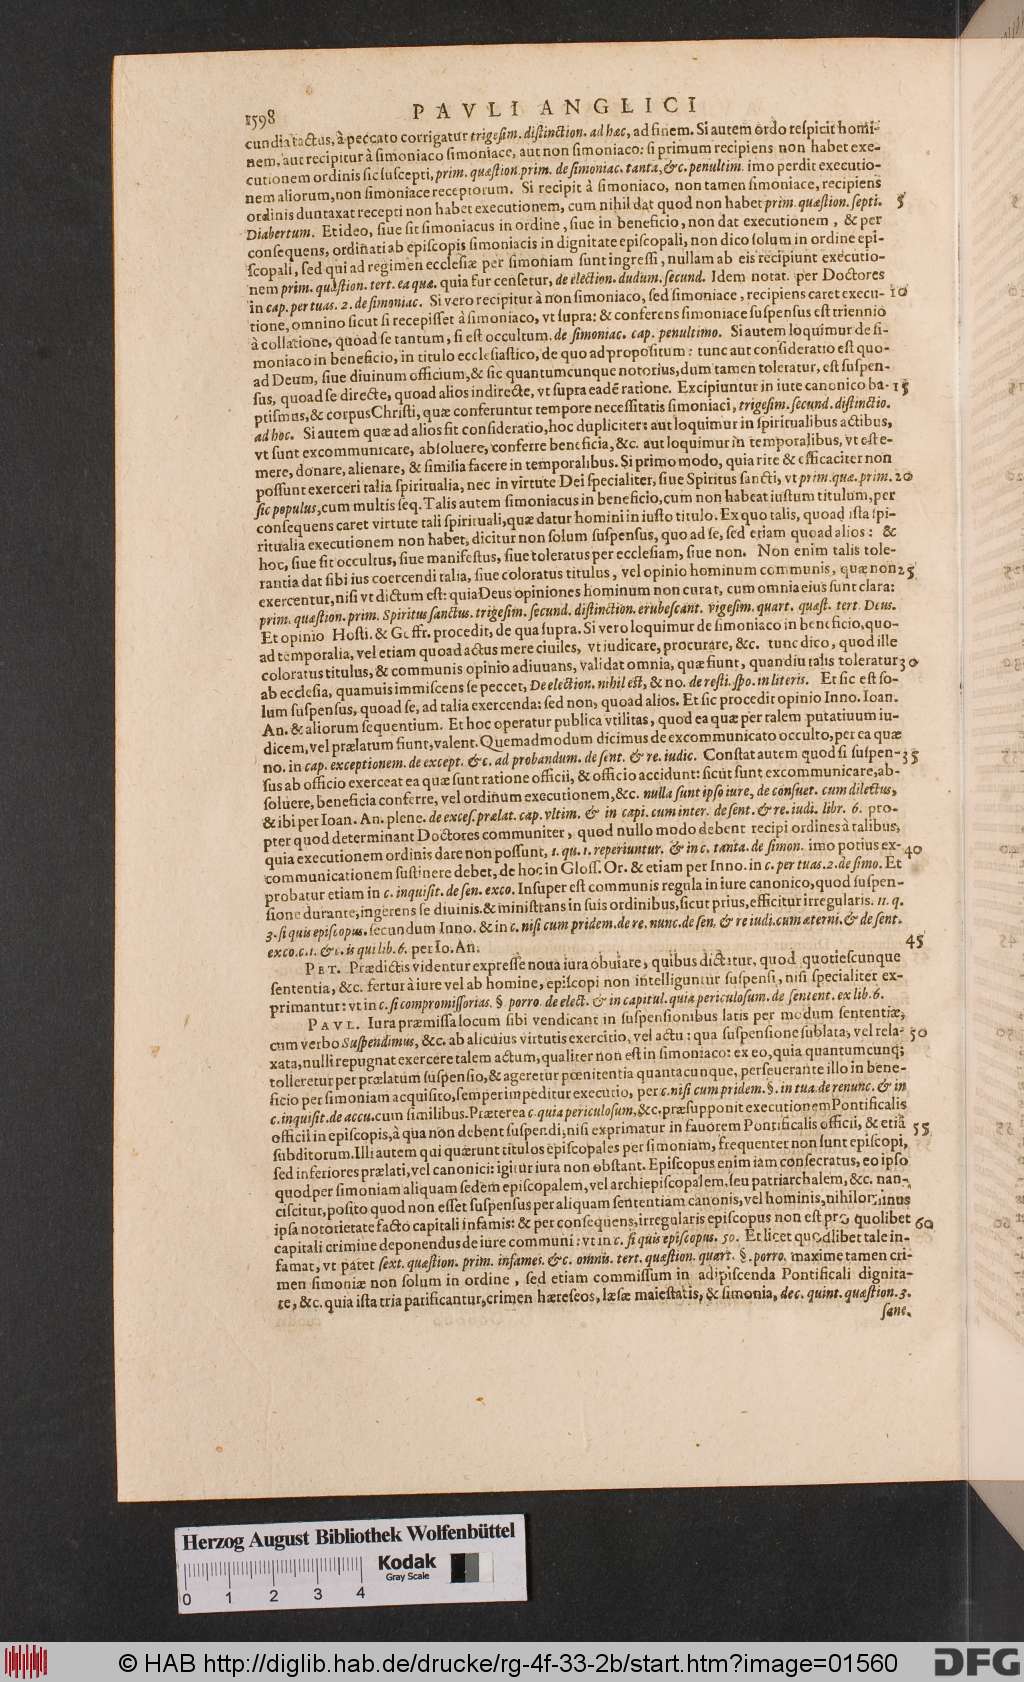 1598 PAVLI ANGLICI
cundia tactus, à peccato corrigatur trigesim. distinction. ad hæc, ad finem. Si autem ordo respicit homi-
nem, aut recipitur à simoniaco simoniace, aut non simoniaco: si primum recipiens non habet exe-
cutionem ordinis sic suscepti, prim. quæstion. prim. de simoniac. tanta, &c. penultim. imo perdit executio-
nem aliorum, non simoniace receptorum. Si recipit à simoniaco, non tamen simoniace, recipiens
ordinis duntaxat recepti non habet executionem, cum nihil dat quod non habet prim. quæstion. septi. 5
Diabertum. Et ideo, siue sit simoniacus in ordine, siue in beneficio, non dat executionem, & per
consequens, ordinati ab episcopis simoniacis in dignitate episcopali, non dico solum in ordine epi-
scopali, sed qui ad regimen ecclesiæ per simoniam sunt ingressi, nullam ab eis recipiunt executio-
nem prim. quæstion. tert. ea quæ. quia fur censetur, de election. dudum. secund. Idem notat. per Doctores
in cap. per tuas. 2. de simoniac. Si vero recipitur à non simoniaco, sed simoniace, recipiens caret execu- 10
tione, omnino sicut si recepisset à simoniaco, vt supra: & conferens simoniace suspensus est triennio
à collatione, quoad se tantum, si est occultum. de simoniac. cap. penultimo. Si autem loquimur de si-
moniaco in beneficio, in titulo ecclesiastico, de quo ad propositum: tunc aut consideratio est quo-
ad Deum, siue diuinum officium, & sic quantumcunque notorius, dum tamen toleratur, est suspen-
sus, quoad se directe, quoad alios indirecte, vt supra eadē ratione. Excipiuntur in iure canonico ba- 15
ptismus, & corpus Christi, quæ conferuntur tempore necessitatis simoniaci, trigesim. secund. distinctio.
ad hoc. Si autem quæ ad alios fit consideratio, hoc dupliciter: aut loquimur in spiritualibus actibus,
vt sunt excommunicare, absoluere, conferre beneficia, &c. aut loquimur in temporalibus, vt est e-
mere, donare, alienare, & similia facere in temporalibus. Si primo modo, quia rite & efficaciter non
possunt exerceri talia spiritualia, nec in virtute Dei specialiter, siue Spiritus sancti, vt prim. quæ. prim. 20
sic populus, cum multis seq. Talis autem simoniacus in beneficio, cum non habeat iustum titulum, per
consequens caret virtute tali spirituali, quæ datur homini in iusto titulo. Ex quo talis, quoad ista spi-
ritualia executionem non habet, dicitur non solum suspensus, quo ad se, sed etiam quoad alios: &
hoc, siue sit occultus, siue manifestus, siue toleratus per ecclesiam, siue non. Non enim talis tole-
rantia dat sibi ius coercendi talia, siue coloratus titulus, vel opinio hominum communis, quæ non 25
exercentur, nisi vt dictum est: quia Deus opiniones hominum non curat, cum omnia eius sunt clara:
prim. quæstion. prim. Spiritus sanctus. trigesim. secund. distinction. erubescant. vigesim. quart. quæst. tert. Deus.
Et opinio Hosti. & Geffr. procedit, de qua supra. Si vero loquimur de simoniaco in beneficio, quo-
ad temporalia, vel etiam quoad actus mere ciuiles, vt iudicare, procurare, &c. tunc dico, quod ille
coloratus titulus, & communis opinio adiuuans, validat omnia, quæ fiunt, quandiu talis toleratur 30
ab ecclesia, quamuis immiscens se peccet, De election. nihil est, & no. de resti. spo. in literis. Et sic est so-
lum suspensus, quoad se, ad talia exercenda: sed non, quoad alios. Et sic procedit opinio Inno. Ioan.
An. & aliorum sequentium. Et hoc operatur publica vtilitas, quod ea quæ per talem putatiuum iu-
dicem, vel prælatum fiunt, valent. Quemadmodum dicimus de excommunicato occulto, per ea quæ
no. in cap. exceptionem. de except. & c. ad probandum. de sent. & re. iudic. Constat autem quod si suspen- 35
sus ab officio exerceat ea quæ sunt ratione officii, & officio accidunt: sicut sunt excommunicare, ab-
soluere, beneficia conferre, vel ordinum executionem, &c. nulla sunt ipso iure, de consuet. cum dilectus,
& ibi per Ioan. An. plene. de exces. prælat. cap. vltim. & in capi. cum inter. de sent. & re. iudi. libr. 6. pro-
pter quod determinant Doctores communiter, quod nullo modo debent recipi ordines à talibus,
quia executionem ordinis dare non possunt, 1. qu. 1. reperiuntur. & in c. tanta. de simon. imo potius ex- 40
communicationem sustinere debet, de hoc in Gloss. Or. & etiam per Inno. in c. per tuas. 2. de simo. Et
probatur etiam in c. inquisit. de sen. exco. Insuper est communis regula in iure canonico, quod suspen-
sione durante, ingerens se diuinis. & ministrans in suis ordinibus, sicut prius, efficitur irregularis. 11. q.
3. si quis episcopus. secundum Inno. & in c. nisi cum pridem. de re. nunc. de sen. & re iudi. cum æterni. & de sent.
exco. c. 1. & c. is qui lib. 6. per Io. An. 45
PET. Prædictis videntur expresse noua iura obuiare, quibus dictatur, quod quotiescunque
sententia, &c. fertur à iure vel ab homine, episcopi non intelliguntur suspensi, nisi specialiter ex-
primantur: vt in c. si compromissorias. § porro. de elect. & in capitul. quia periculosum. de sentent. ex lib. 6.
PAVL. Iura præmissa locum sibi vendicant in suspensionibus latis per modum sententiæ,
cum verbo Suspendimus, &c. ab alicuius virtutis exercitio, vel actu: qua suspensione sublata, vel rela- 50
xata, nulli repugnat exercere talem actum, qualiter non est in simoniaco: ex eo, quia quantumcunq;
tolleretur per prælatum suspensio, & ageretur pœnitentia quantacunque, perseuerante illo in bene-
ficio per simoniam acquisito, semper impeditur executio, per c. nisi cum pridem. §. in tua. de renunc. & in
c. inquisit. de accu. cum similibus. Præterea c. quia periculosum, &c. præsupponit executionem Pontificalis
officii in episcopis, à qua non debent suspendi, nisi exprimatur in fauorem Pontificalis officii, & etiā 55
subditorum. Illi autem qui quærunt titulos episcopales per simoniam, frequenter non sunt episcopi,
sed inferiores prælati, vel canonici: igitur iura non obstant. Episcopus enim iam consecratus, eo ipso
quod per simoniam aliquam sedem episcopalem, vel archiepiscopalem, seu patriarchalem, &c. nan-
ciscitur, posito quod non esset suspensus per aliquam sententiam canonis, vel hominis, nihilominus
ipsa notorietate facto capitali infamis: & per consequens, irregularis episcopus non est pro quolibet 60
capitali crimine deponendus de iure communi: vt in c. si quis episcopus. 50. Et licet quodlibet tale in-
famat, vt patet sext. quæstion. prim. infames. & c. omnis. tert. quæstion. quart. §. porro. maxime tamen cri-
men simoniæ non solum in ordine, sed etiam commissum in adipiscenda Pontificali dignita-
te, &c. quia ista tria parificantur, crimen hæreseos, læsæ maiestatis, & simonia, dec. quint. quæstion. 3.
sane.
Herzog August Bibliothek Wolfenbüttel
Kodak
Gray Scale
0 1 2 3 4
© HAB http://diglib.hab.de/drucke/rg-4f-33-2b/start.htm?image=01560 DFG